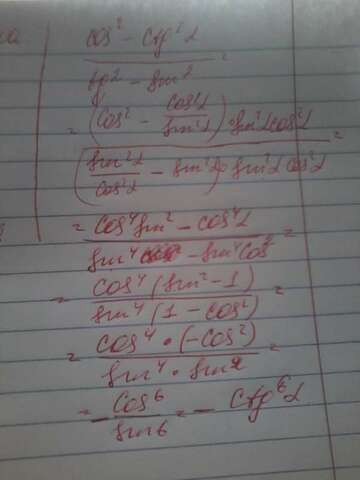 cos² - ctg²α
tg² - sin² =
= (cos² - cos²α / sin²α) · sin²α cos²α =
(sin²α / cos²α - sin²α) · sin²α cos²α
= cos⁴ sin² - cos⁴α =
sin⁴ - sin⁴ cos²
= cos⁴ (sin² - 1) =
sin⁴ (1 - cos²)
= cos⁴ · (-cos²) =
sin⁴ · sin²
= - cos⁶ / sin6 = - ctg⁶α